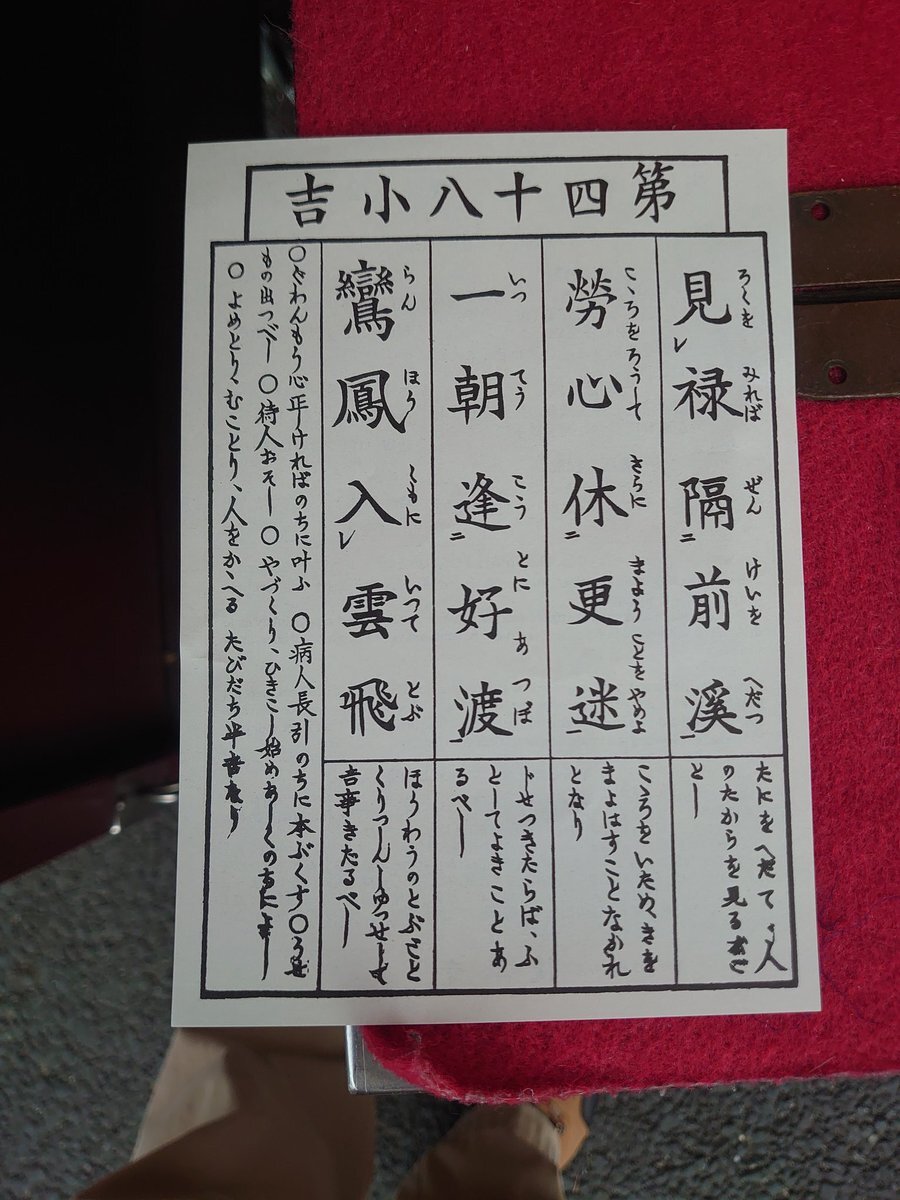 第四十八小吉
見禄隔前溪
ろくを みれば ぜん けいを へだつ
たにをへだて、人
のたからを見るごと
とし
勞心休更迷
こころをろうして さらに まよう ことをやめよ
こころをいため、きを
まよはすことなかれ
となり
一朝逢好渡
いつ てう こう とに あ つぼ
じせつきたらば、ふ
としてよきことあ
るべし
鸞鳳入雲飛
らん ほう くもに いつて とぶ
ほうわうのとぶごと
くりつしんしゆつせして
吉事きたるべし
〇ぐわんもう心正しければのちに叶ふ 〇病人長引のちに本ぶくす 〇うせ
もの出づべし 〇待人おそし 〇やづくり、ひきこし始めあしくのちによし
〇よめとり、むことり、人をかゝへる たびだち半吉なり